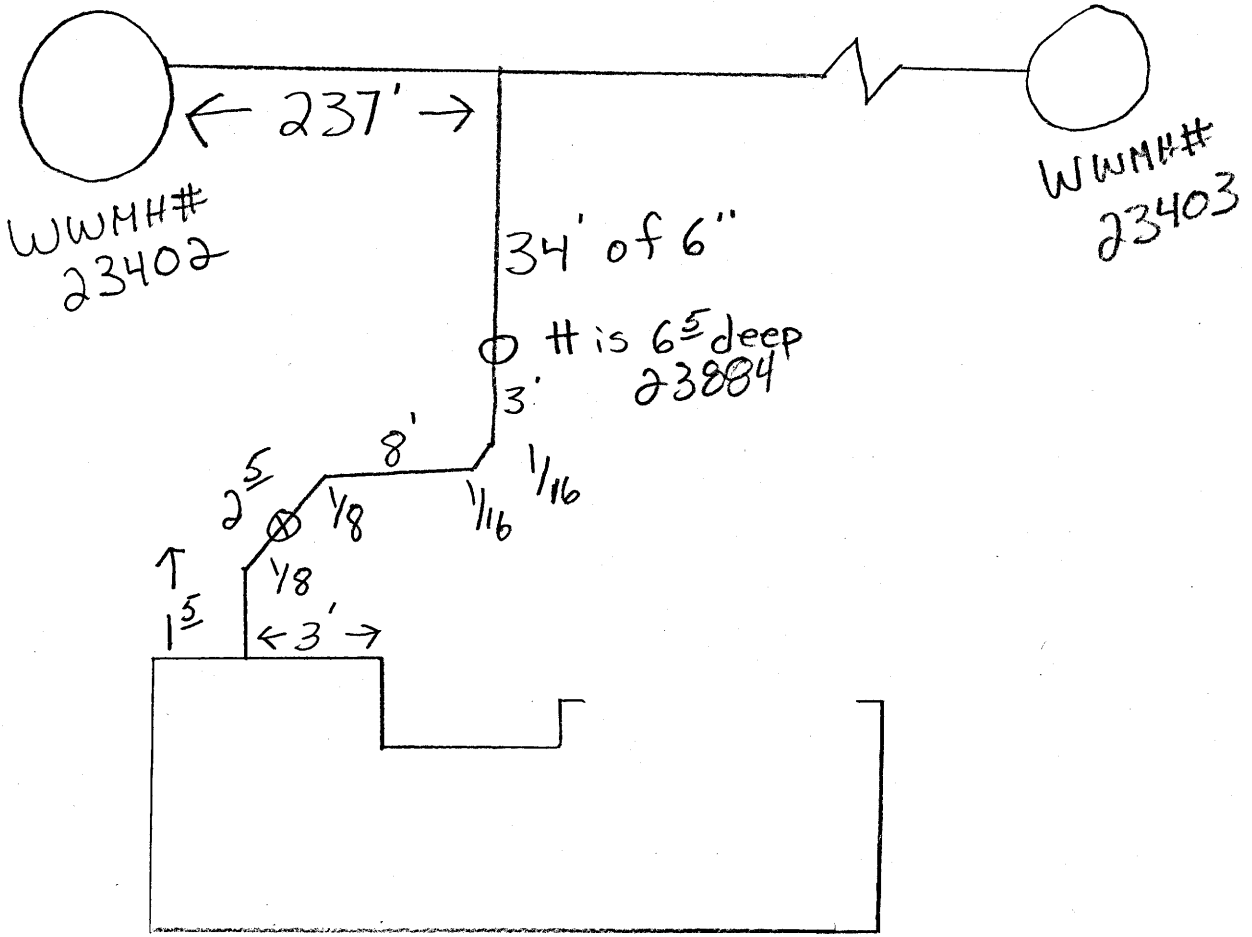 ← 237' →
WWMH#
23402
WWMH#
23403
34' of 6"
# is 6⁵ deep
23884
3'
8'
1/16
1/16
2⁵
1/8
1/8
↑
1⁵
← 3' →